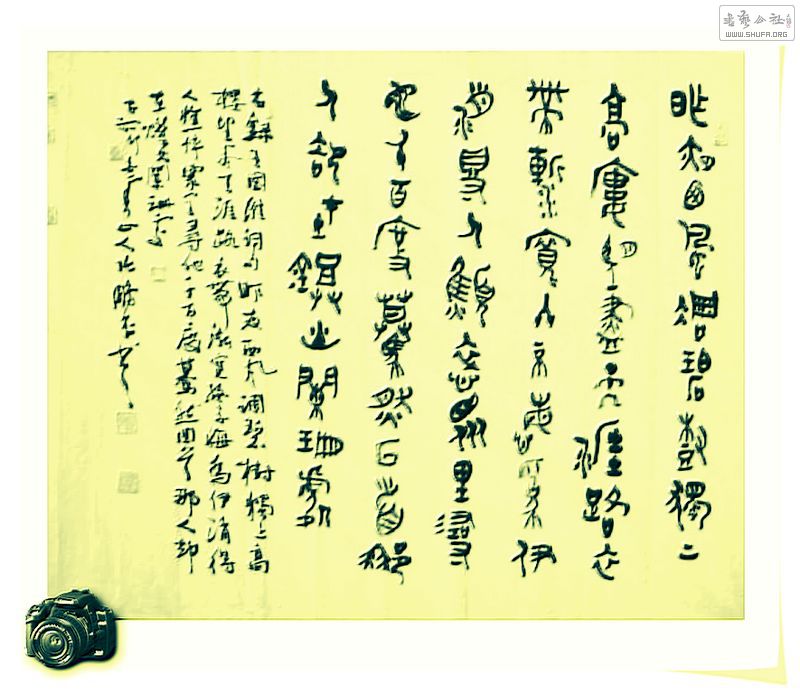 昨夜西風凋碧樹獨上
高樓望盡天涯路衣
帶漸寬終不悔為伊
消得人憔悴眾里尋
他千百度驀然回首那
人卻在鐙火闌珊處
右錄王國維詞句昨夜西風調碧樹獨上高
樓望盡天涯路衣帶漸寬終不悔為伊消得
人憔悴眾里尋他千百度驀然回首那人卻
在燈火闌珊處
WWW.SHUFA.ORG